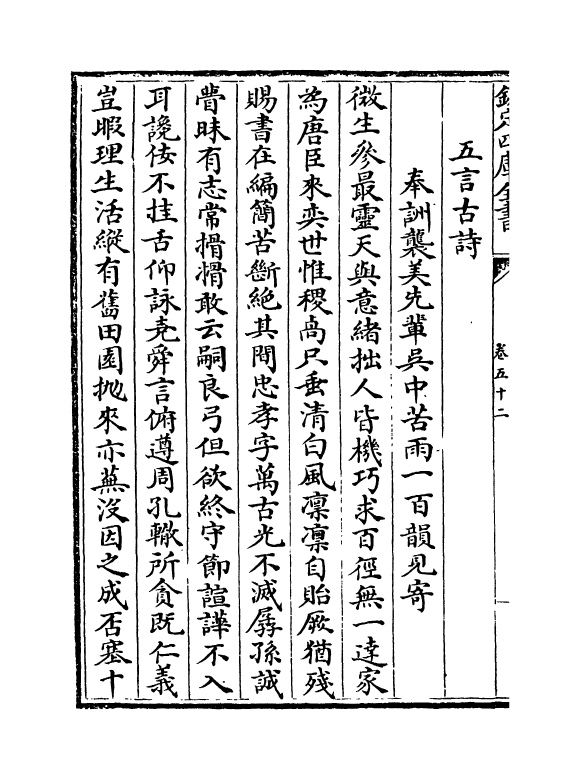 欽定四庫全書
卷五十二
五言古詩
奉詶襲美先輩吳中苦雨一百韻見寄
微生參最靈天與意緒拙人皆機巧求百徑無一達家
為唐臣來奕世惟稷卨只垂清白風凜凜自貽厥猶殘
賜書在編簡苦斷絕其間忠孝字萬古光不滅孱孫誠
瞢昧有志常搰搰敢云嗣良弓但欲終守節諠譁不入
耳讒佞不挂舌仰詠堯舜言俯遵周孔轍所貪既仁義
豈暇理生活縱有舊田園抛來亦蕪沒因之成否塞十